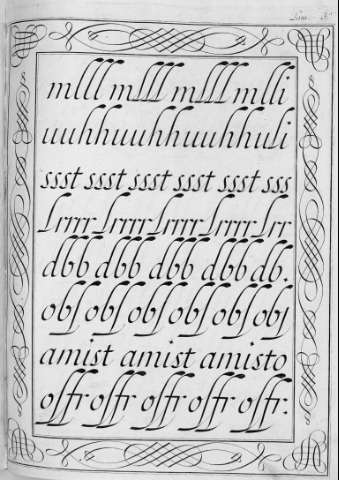 mlll mlll mlll mlli
uuhhuuhhuuhhuli
ssst ssst ssst ssst ssst sss
Lrrrr Lrrrr Lrrrr Lrrrr Lrr
dbb dbb dbb dbb db.
obſ obſ obſ obſ obſ obſ
amist amist amisto
oſfr oſfr oſfr oſfr oſfr.